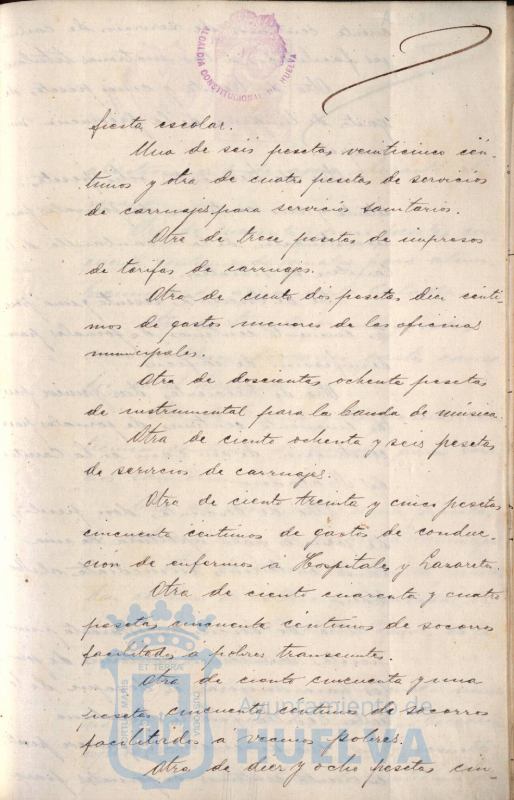 ALCALDIA CONSTITUCIONAL DE HUELVA
fiesta escolar.
Una de seis pesetas veinticinco cén-
timos y otra de cuatro pesetas de servicios
de carruajes para servicios sanitarios.
Otra de trece pesetas de impresos
de tarifas de carruajes.
Otra de ciento dos pesetas diez cénti-
mos de gastos menores de las oficinas
municipales.
Otra de doscientas ochenta pesetas
de instrumental para la banda de música.
Otra de ciento ochenta y seis pesetas
de servicios de carruajes.
Otra de ciento treinta y cinco pesetas
cincuenta céntimos de gastos de conduc-
ción de enfermos á Hospitales y Lazareto.
Otra de ciento cuarenta y cuatro
pesetas cincuenta céntimos de socorros
facilitados a pobres transeuntes.
Otra de ciento cincuenta y una
pesetas cincuenta céntimos de socorros
facilitados á vecinos pobres.
Otra de diez y ocho pesetas cin-
PORTUS MARIS ET TERRAE CUSTODIA
Ayuntamiento de
HUELVA